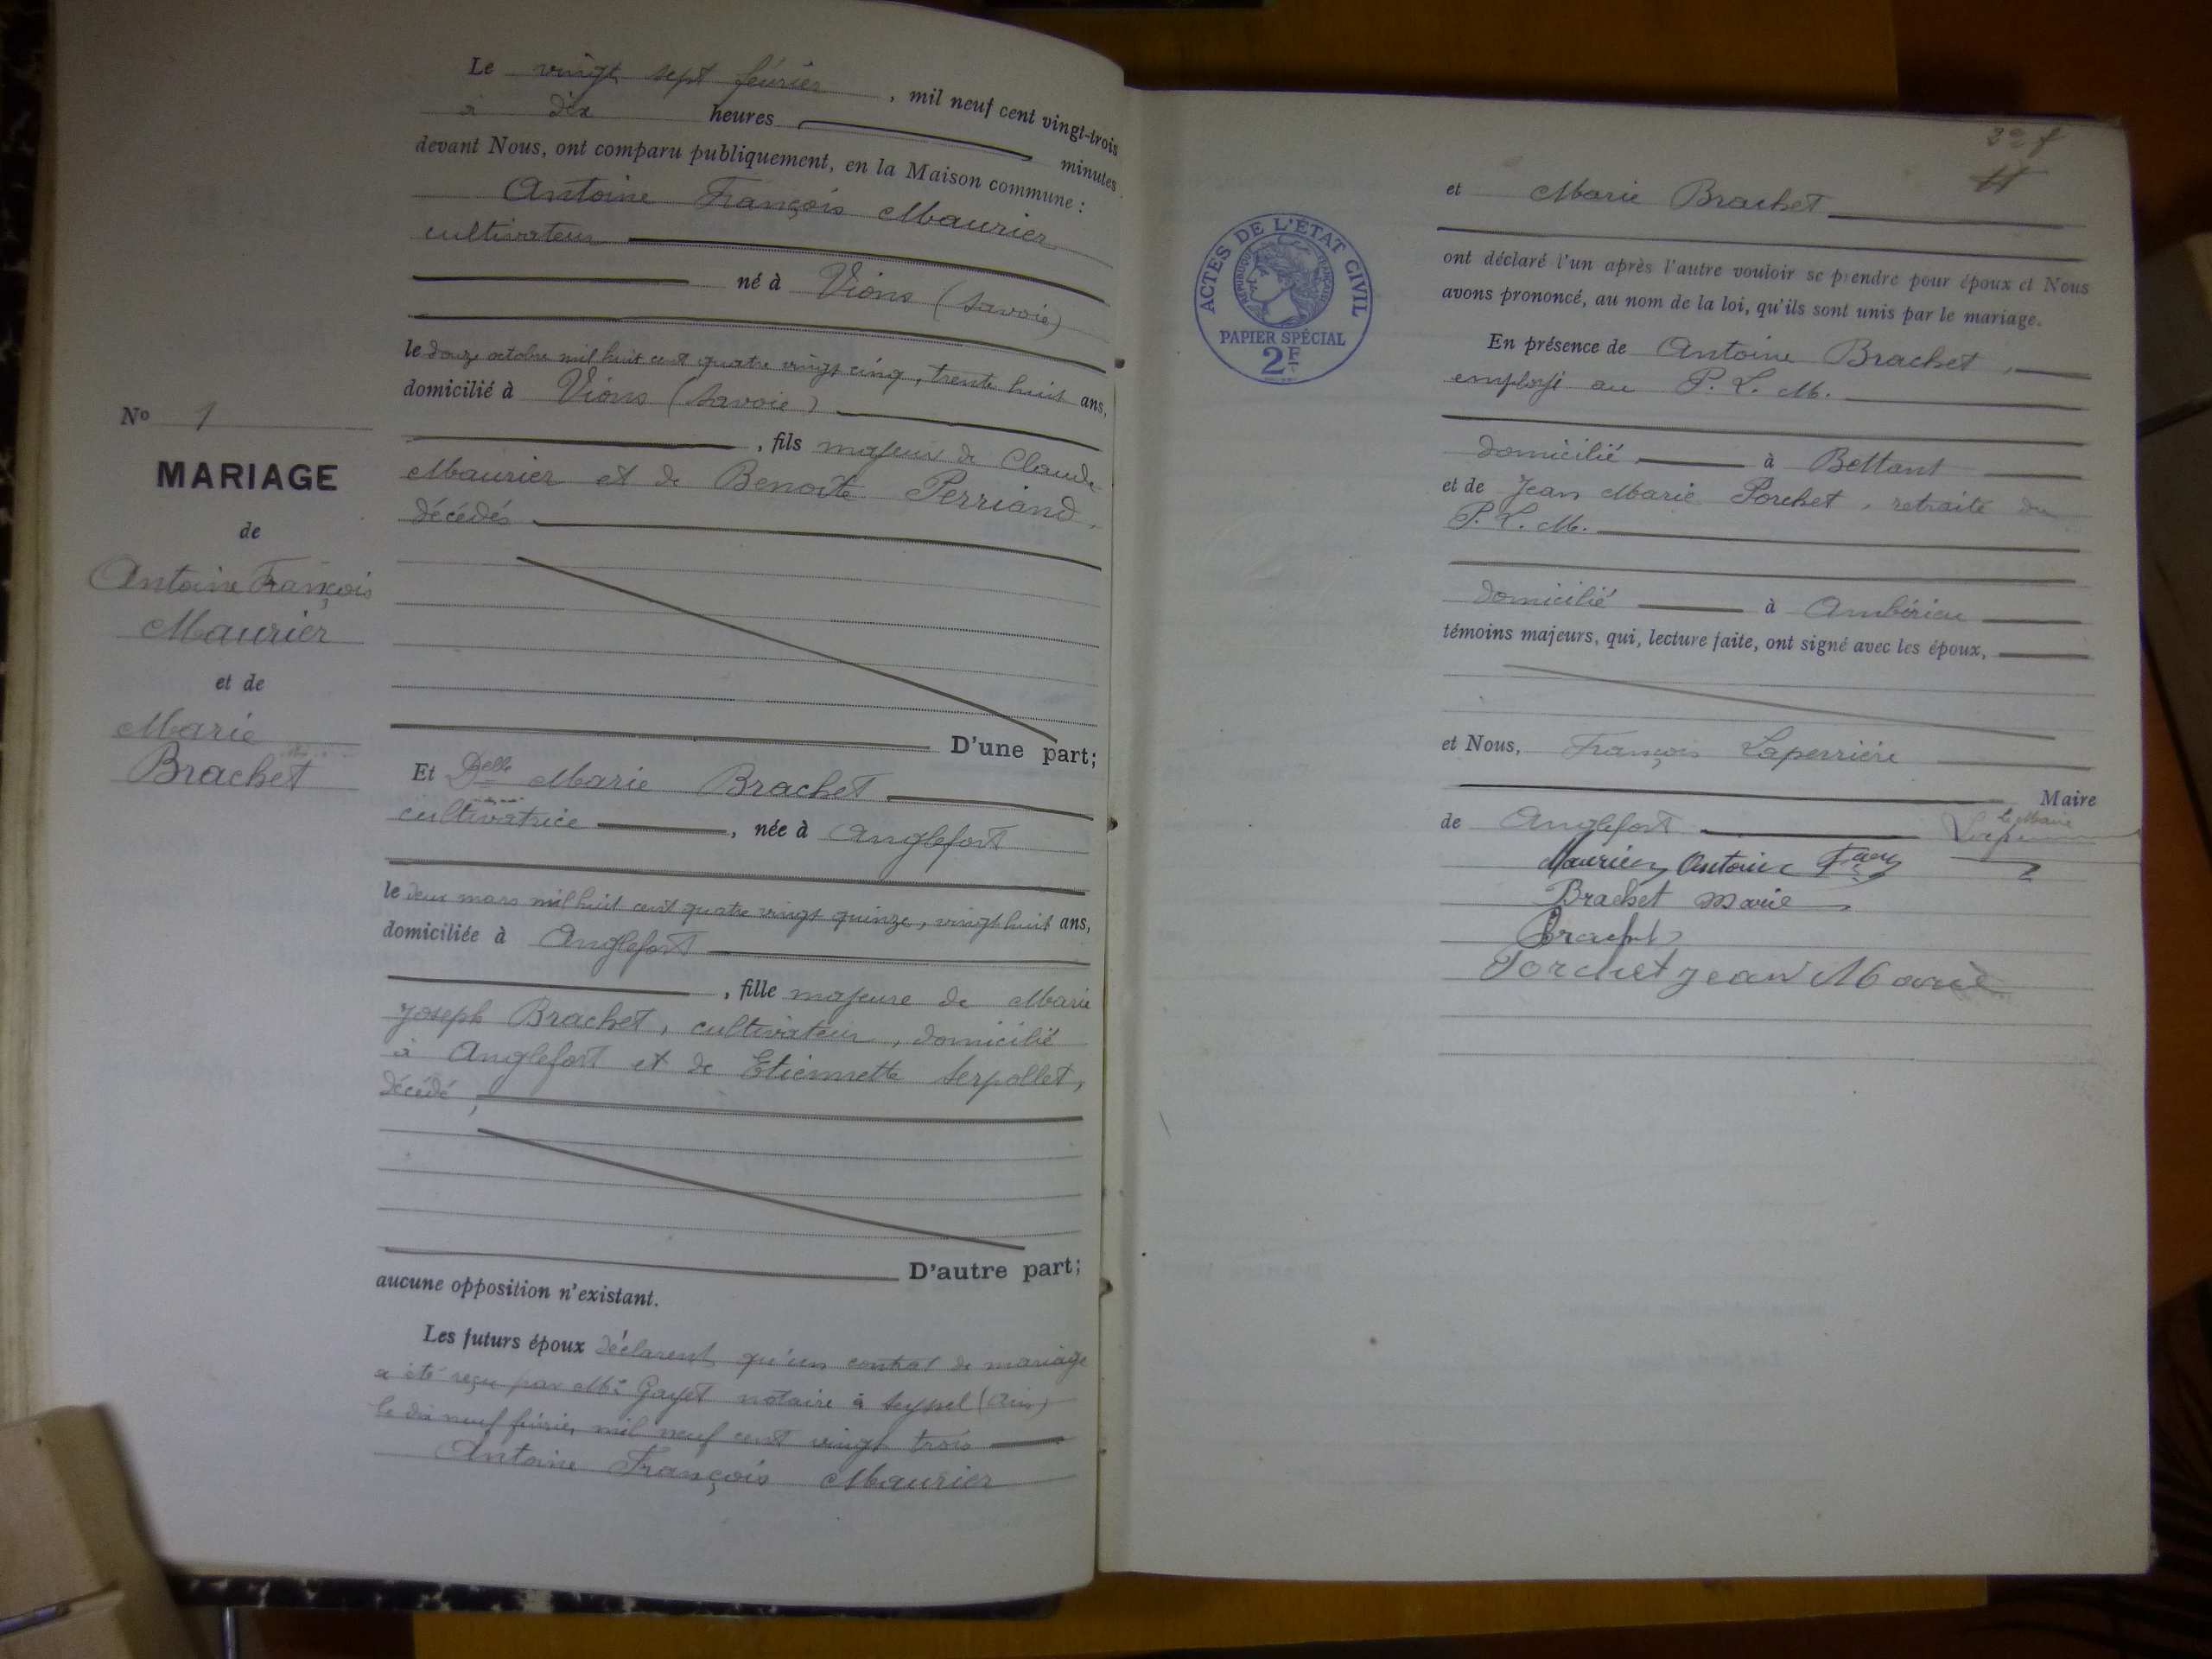 Le vingt sept février, mil neuf cent vingt-trois
à dix heures minutes
devant Nous, ont comparu publiquement, en la Maison commune :
Antoine François Maurier
cultivateur
né à Vions (Savoie)
le douze octobre mil huit cent quatre vingt cinq, trente huit ans,
domicilié à Vions (Savoie)
, fils majeur de Claude
Maurier et de Benoite Perriand,
décédés
No 1
MARIAGE
de
Antoine François
Maurier
et de
Marie
Brachet
D'une part;
Et Delle Marie Brachet
cultivatrice, née à Anglefort
le deux mars mil huit cent quatre vingt quinze, vingt huit ans,
domiciliée à Anglefort
, fille majeure de Marie
Joseph Brachet, cultivateur, domicilié
à Anglefort et de Etiennette Serpollet,
décédé,
D'autre part;
aucune opposition n'existant.
Les futurs époux déclarent qu'un contrat de mariage
a été reçu par Me Gayet notaire à Seyssel (Ain)
le dix neuf février mil neuf cent vingt trois
Antoine François Maurier
32 f
et Marie Brachet
ACTES DE L'ÉTAT CIVIL
RÉPUBLIQUE FRANÇAISE
PAPIER SPÉCIAL
2F
ont déclaré l'un après l'autre vouloir se prendre pour époux et Nous
avons prononcé, au nom de la loi, qu'ils sont unis par le mariage.
En présence de Antoine Brachet,
employé au P. L. M.
domicilié à Bettant
et de Jean Marie Porchet, retraité du
P. L. M.
domicilié à Ambérieu
témoins majeurs, qui, lecture faite, ont signé avec les époux,
et Nous, François Laperrière
Maire
de Anglefort
Le Maire
Maurier Antoine
Brachet Marie
Brachet
Porchet Jean Marie